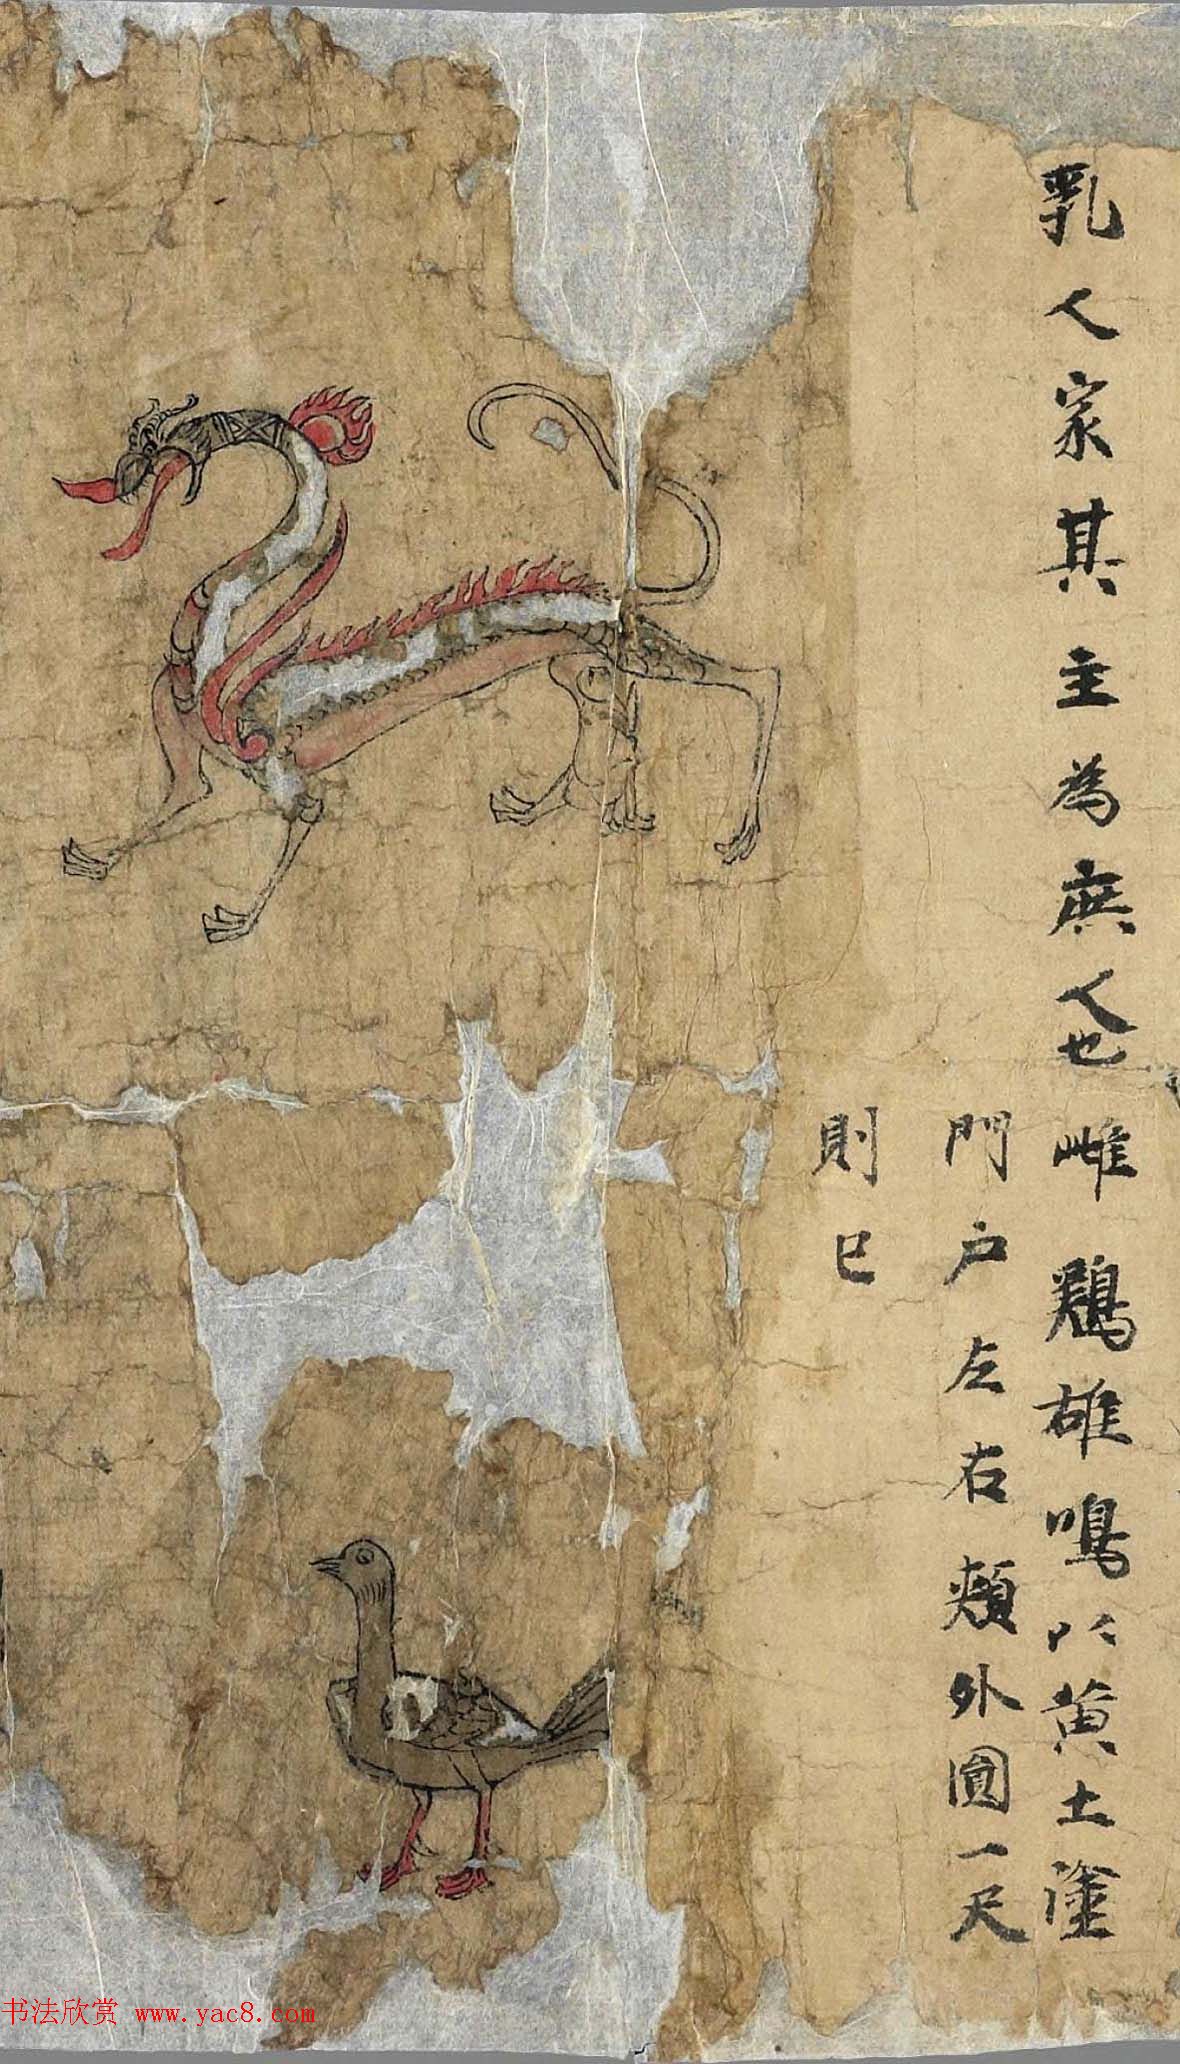 乳人家其主為庶人也雌鷄雄鳴以黄土塗
門户左右頰外圓一尺
則已
书法欣赏 www.yac8.com